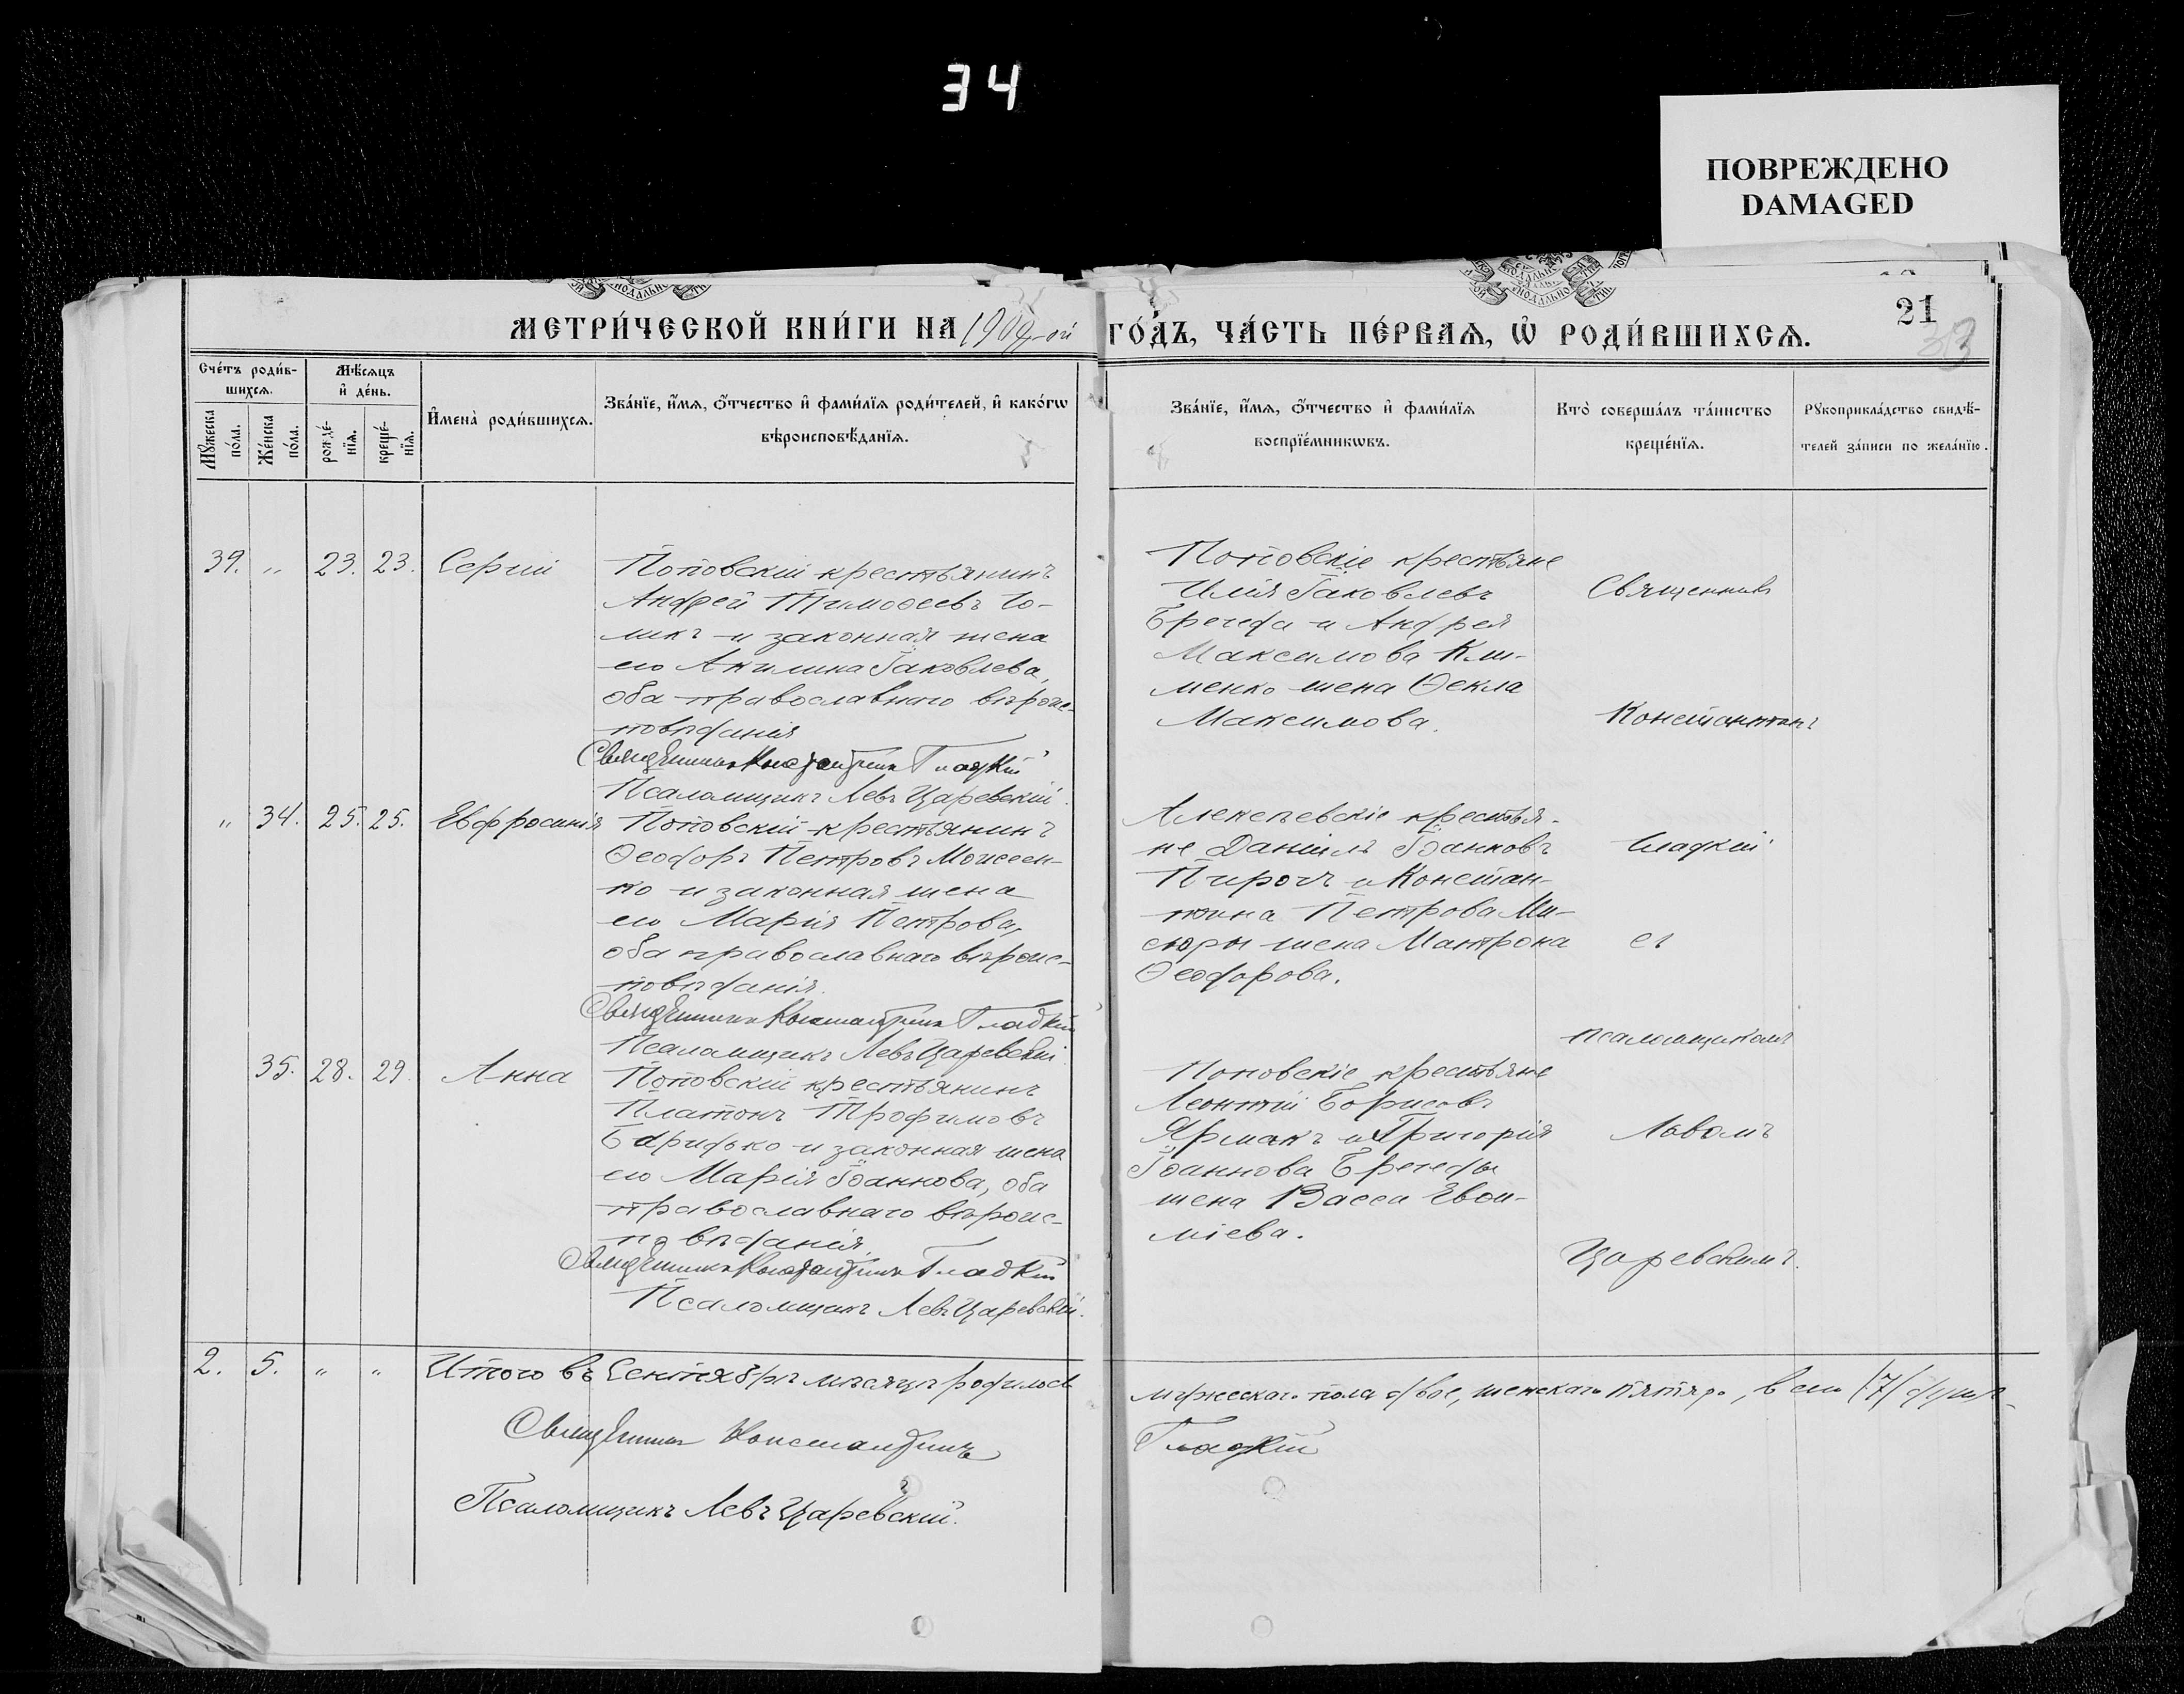 34
ПОВРЕЖДЕНО
DAMAGED
21
МЕТРИ́ЧЕСКОЙ КНИ́ГИ НА 1909-ой ГО́ДЪ, ЧА́СТЬ ПЕ́РВАѦ, Ѡ҆ РОДИ́ВШИХСѦ.
Сче́тъ роди́в-
шихсѧ.
Мꙋ́жеска по́ла.
Же́нска по́ла.
Мѣ́сѧцъ
и҆ де́нь.
рожде́-
нїѧ.
креще́-
нїѧ.
И҆мена̀ роди́вшихсѧ.
Зва́нїе, и҆́мѧ, ѻ҆́тчество и҆ фами́лїѧ роди́телей, и҆ како́гѡ
вѣроисповѣ́данїѧ.
Зва́нїе, и҆́мѧ, ѻ҆́тчество и҆ фами́лїѧ
воспрїе́мникѡвъ.
Кто̀ соверша́лъ та́инство
креще́нїѧ.
Рꙋкоприкла́дство свидѣ́-
телей за́писи по жела́нїю.
39. " 23. 23. Сергій
Поповскій крестьянинъ
Андрей Тимоѳеевъ Го-
ликъ и законная жена
его Акилина Іаковлева,
оба православнаго вѣроис-
повѣданія
Священникъ Константинъ Гладкій
Псаломщикъ Левъ Царевскій.
Поповскіе крестьяне
Илія Іаковлевъ
Бреheда и Андрея
Максимова Кли-
менко жена Ѳекла
Максимова.
" 34. 25. 25. Евфросинія
Поповскій крестьянинъ
Ѳеодоръ Петровъ Моисеен-
ко и законная жена
его Марія Петрова,
оба православнаго вѣроис-
повѣданія.
Священникъ Константинъ Гладкій
Псаломщикъ Левъ Царевскій
Алексѣевскіе крестья-
не Даніилъ Іоанновъ
Пирогъ и Констан-
тина Петрова Ми-
сюры жена Матрона
Ѳеодорова.
35. 28. 29. Анна
Поповскій крестьянинъ
Платонъ Трофимовъ
Баридько и законная жена
его Марія Іоаннова, оба
православнаго вѣроис-
повѣданія.
Священникъ Константинъ Гладкій
Псаломщикъ Левъ Царевскій.
Поповскіе крестьяне
Леонтій Борисовъ
Ярмакъ и Григорія
Іоаннова Брегеды
жена Васса Евѳи-
міева.
Священникъ
Константинъ
Гладкій
съ
псаломщикомъ
Львомъ
Царевскимъ.
2. 5. " " Итого въ Сентябрѣ мѣсяцѣ родилось мужескаго пола двое, женскаго пятеро, всего (7) душъ.
Священникъ Константинъ Гладкій
Псаломщикъ Левъ Царевскій.